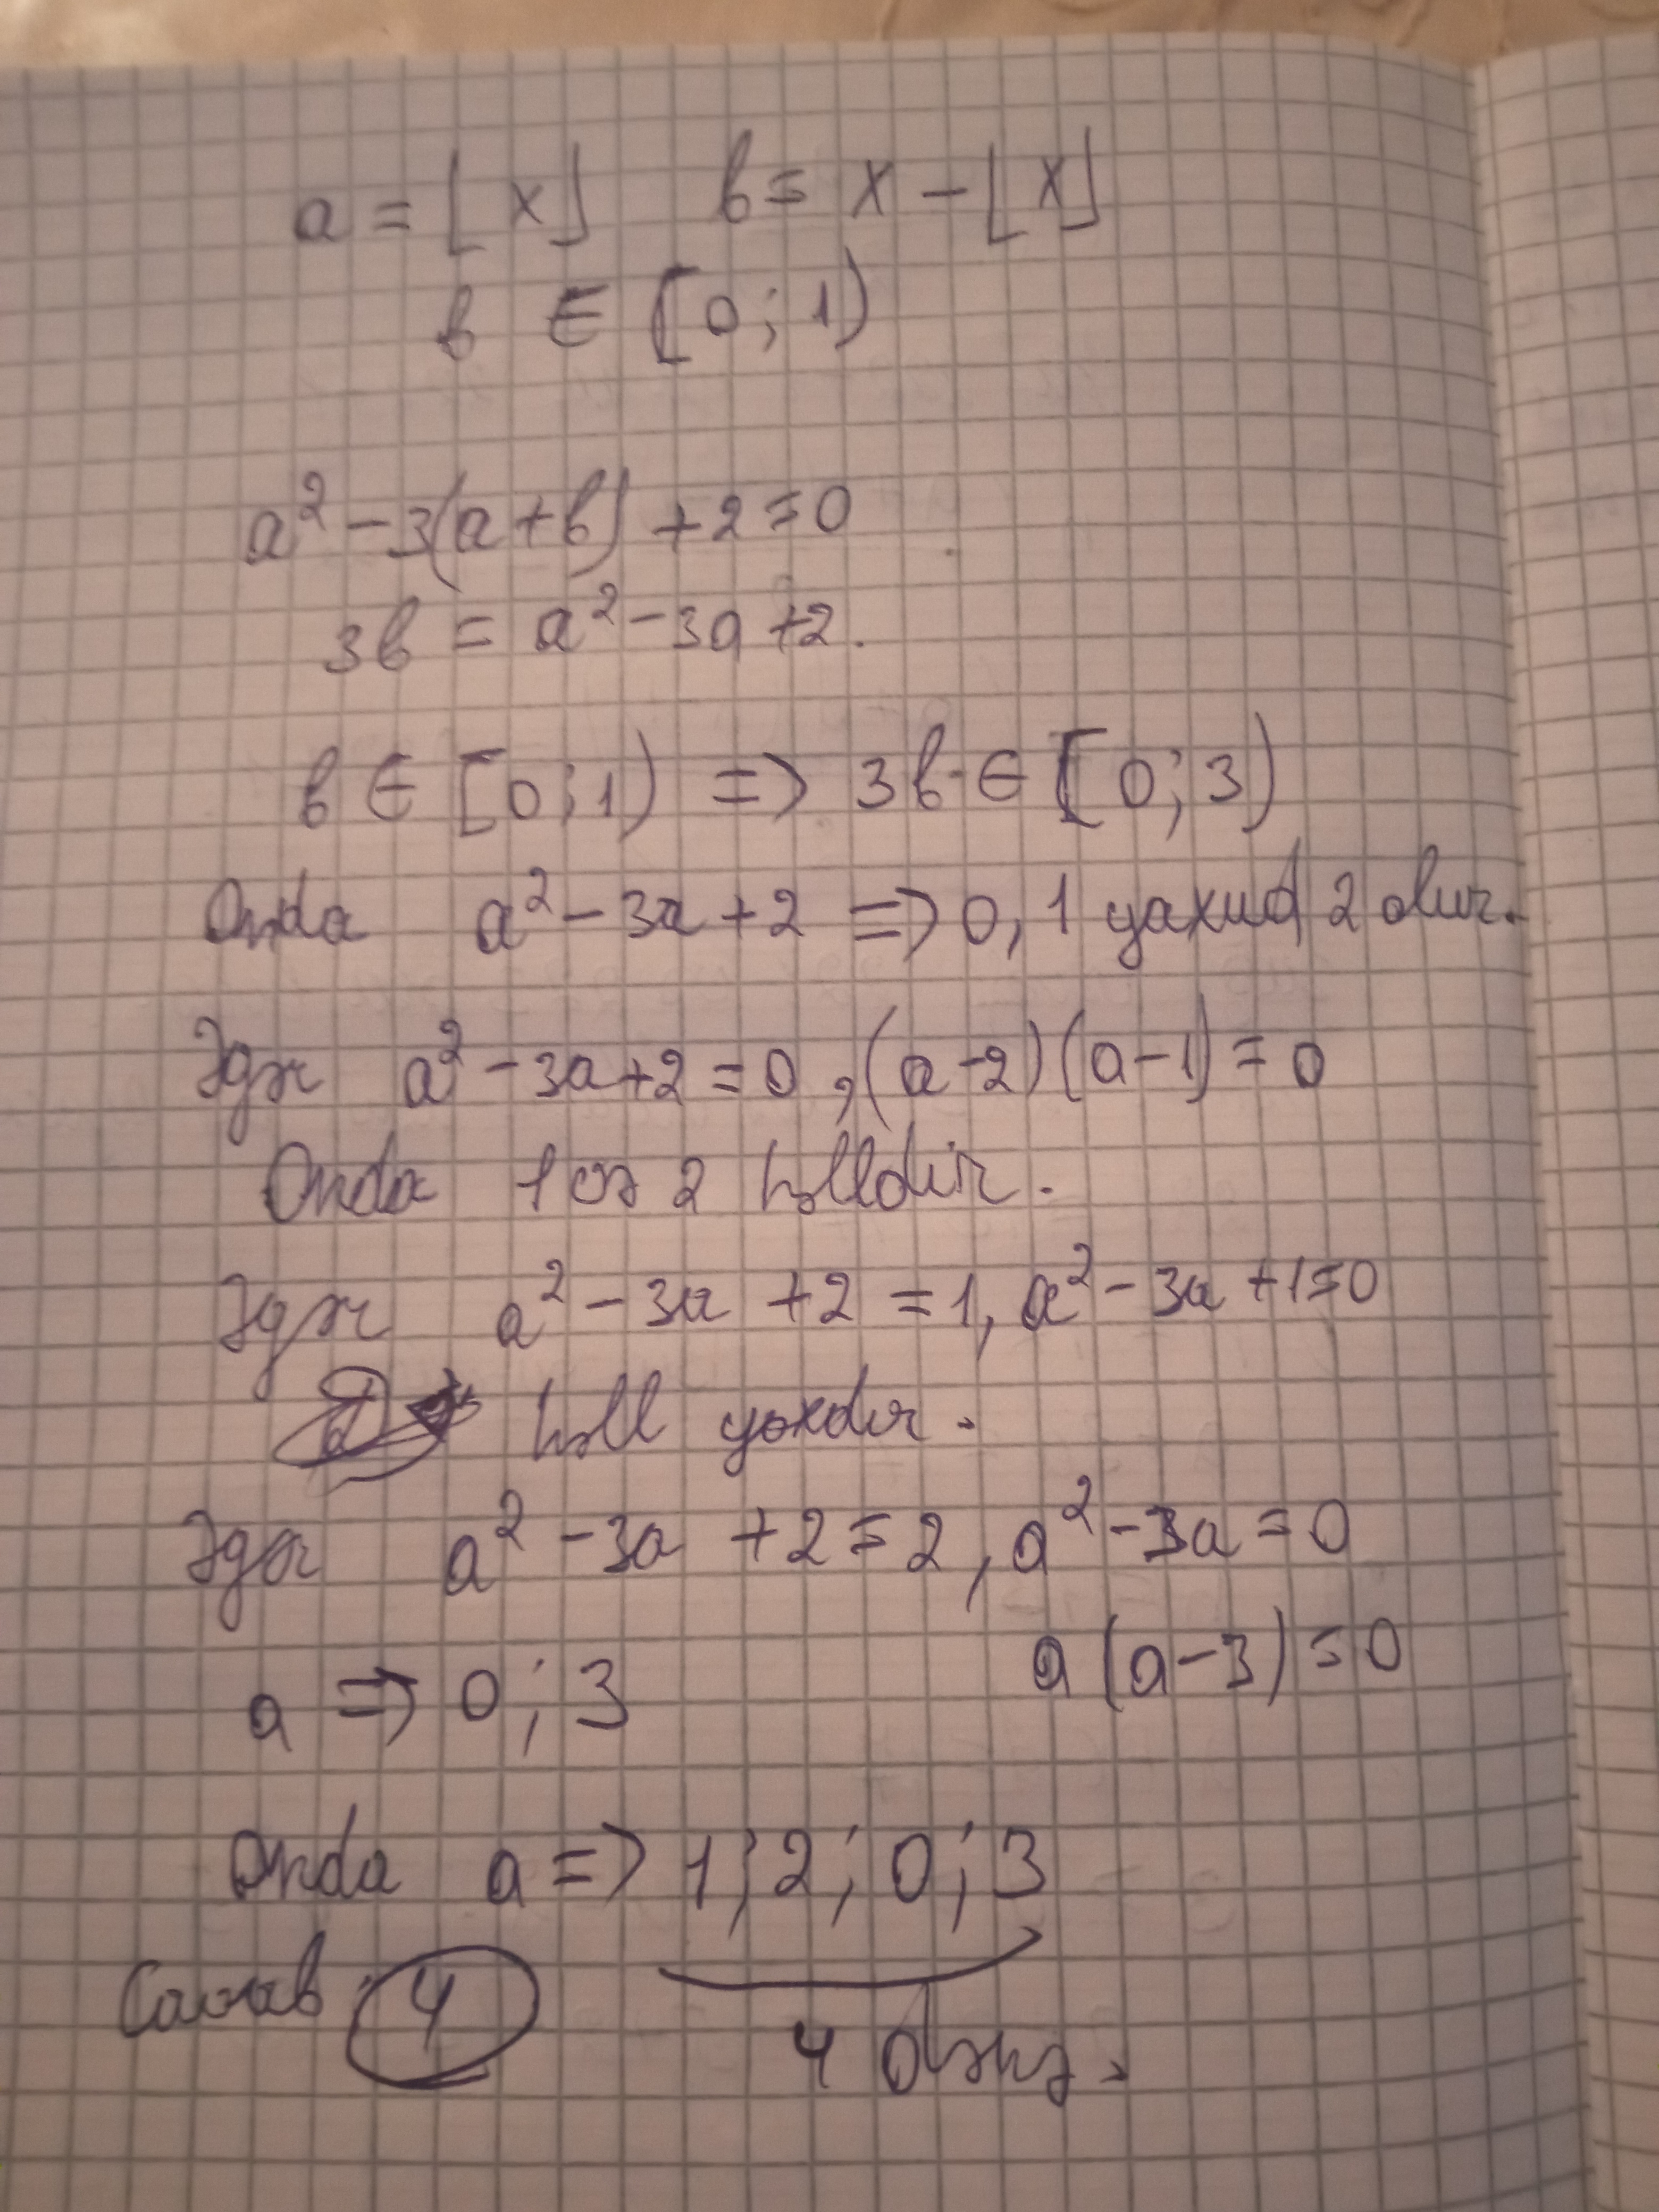 a = ⌊x⌋ b = x - ⌊x⌋
b ∈ [0; 1)
a² - 3(a+b) + 2 = 0
3b = a² - 3a + 2.
b ∈ [0; 1) => 3b ∈ [0; 3)
Onda a² - 3a + 2 => 0, 1 yaxud 2 olur.
Əgər a² - 3a + 2 = 0, (a-2)(a-1) = 0
Onda 1 və 2 həlldir.
Əgər a² - 3a + 2 = 1, a² - 3a + 1 = 0
həll yoxdur.
Əgər a² - 3a + 2 = 2, a² - 3a = 0
a(a-3) = 0
a => 0; 3
Onda a => 1; 2; 0; 3
Cavab: 4
4 dənə.